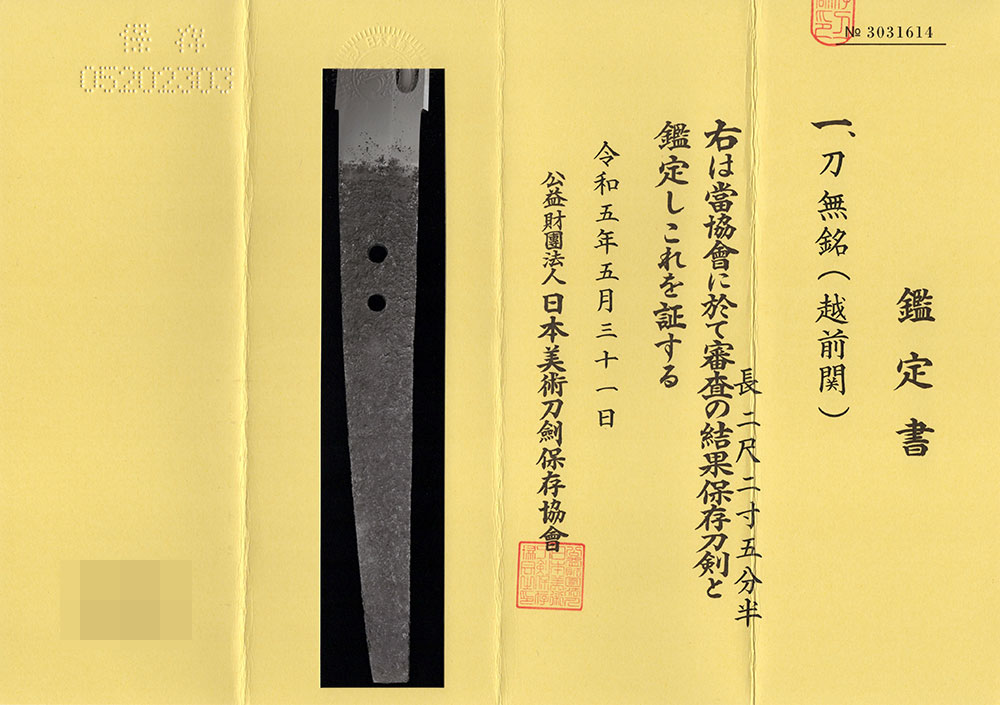 № 3031614
鑑定書
一、刀 無銘(越前関)
長 二尺二寸五分半
右は當協會に於て審査の結果保存刀剣と
鑑定しこれを証する
令和五年五月三十一日
公益財團法人 日本美術刀劍保存協會
保存
05202303